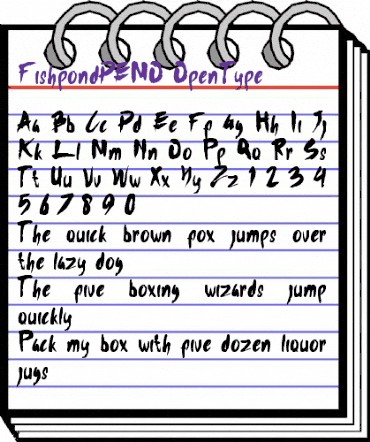 FishpondDEMO OpenType
Aa Bb Cc Dd Ee Ff Gg Hh Ii Jj
Kk Ll Mm Nn Oo Pp Qq Rr Ss
Tt Uu Vv Ww Xx Yy Zz 1 2 3 4
5 6 7 8 9 0
The quick brown fox jumps over
the lazy dog
The five boxing wizards jump
quickly
Pack my box with five dozen liquor
jugs